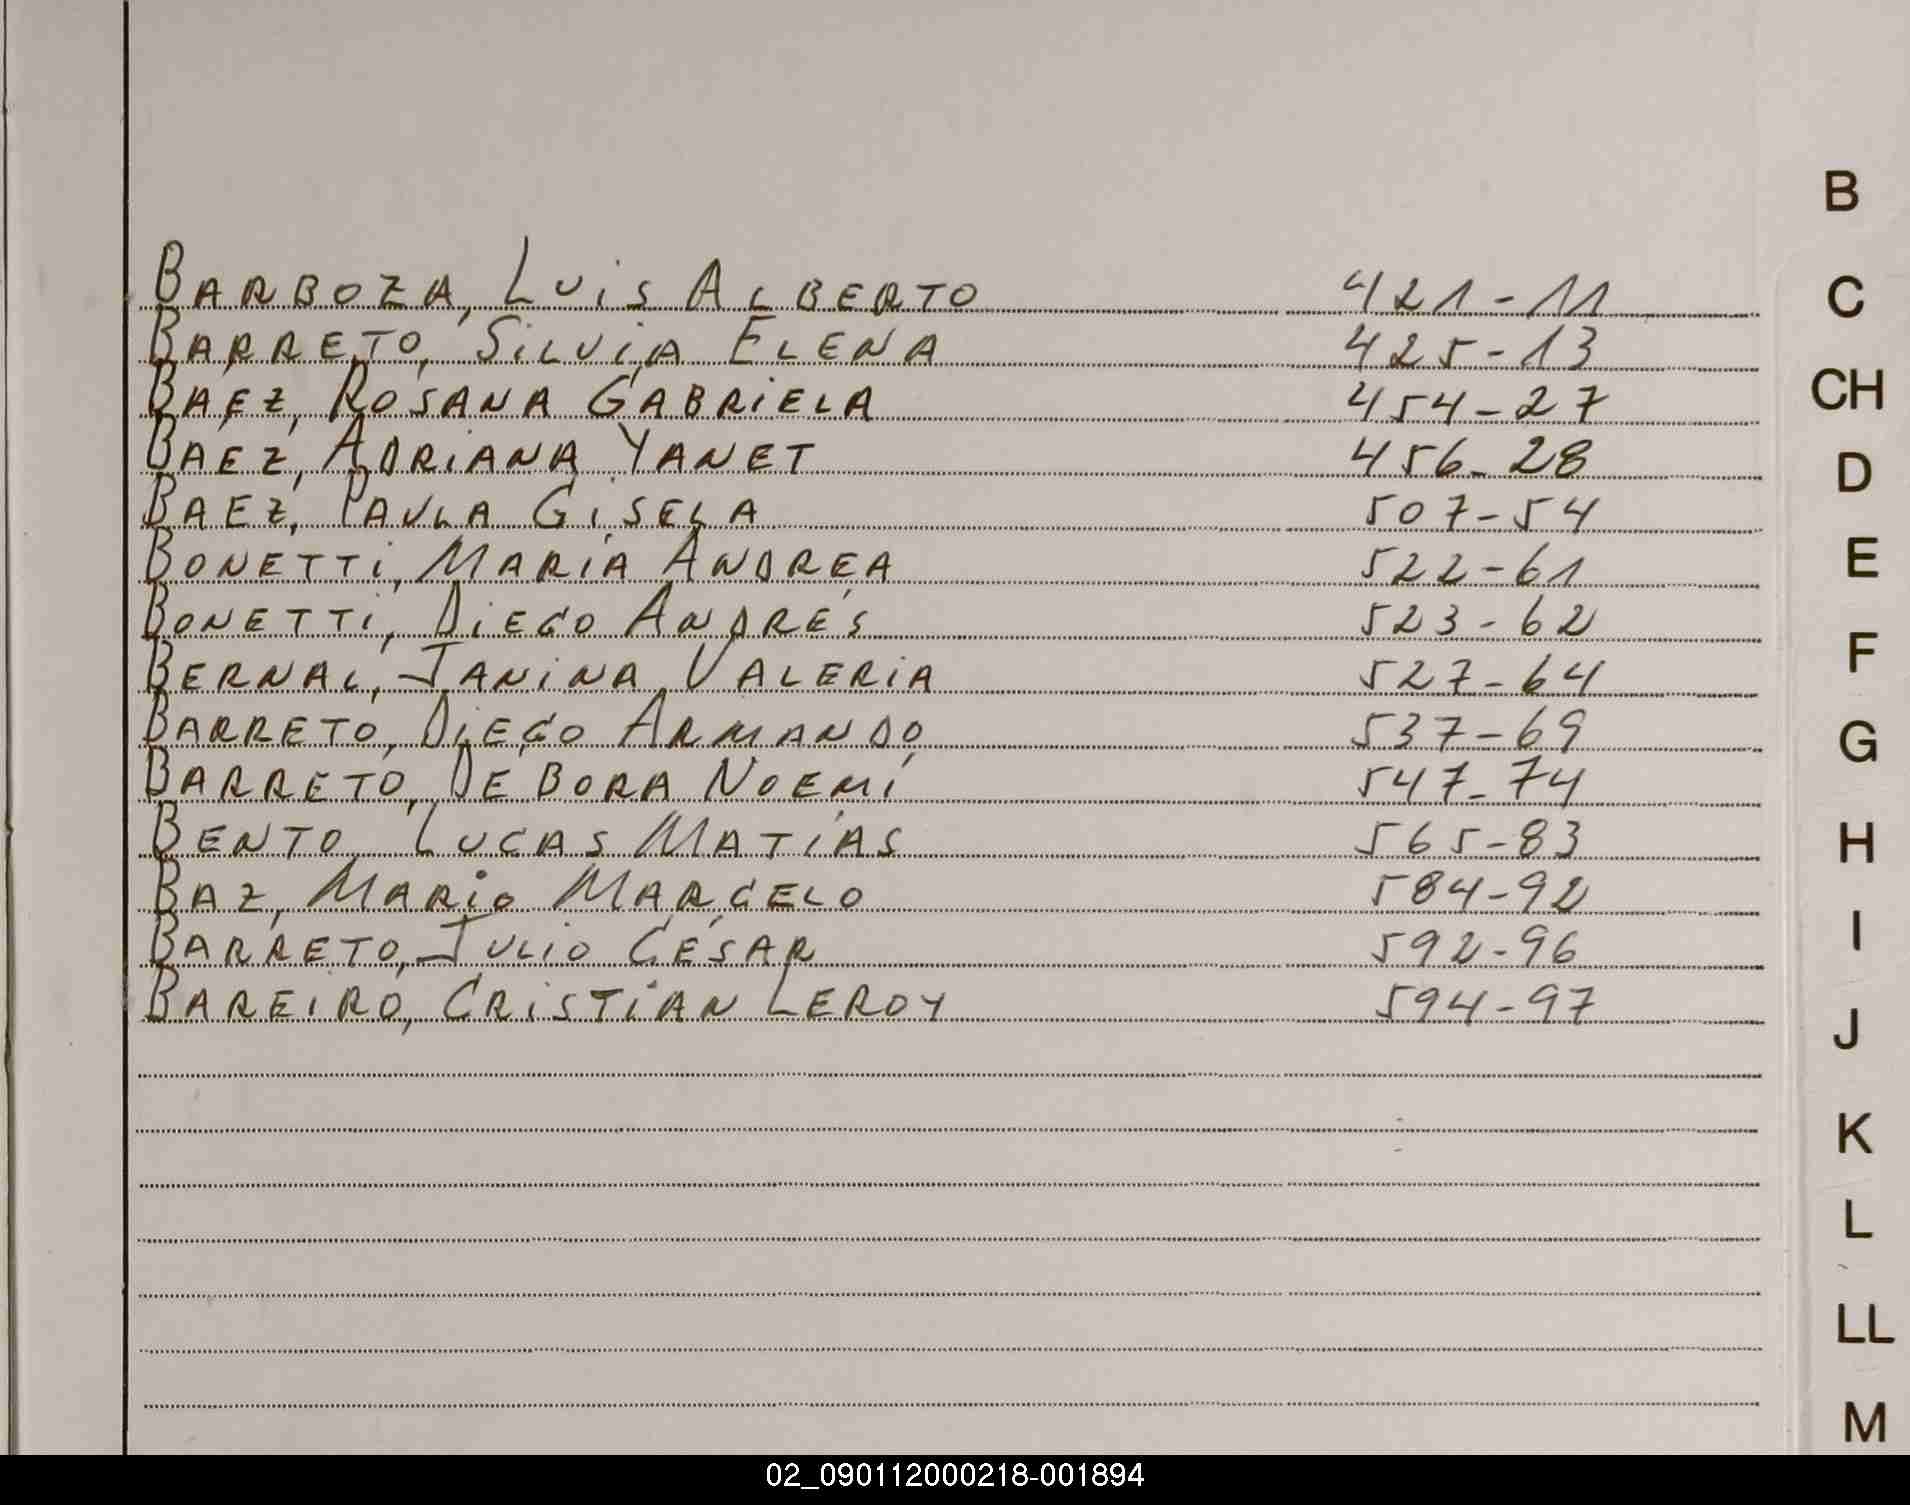 B
BARBOZA, LUIS ALBERTO 421-11
C
BARRETO, SILVIA ELENA 425-13
BAEZ, ROSANA GABRIELA 454-27
CH
BAEZ, ADRIANA YANET 456-28
D
BAEZ, PAULA GISELA 507-54
BONETTI, MARIA ANDREA 522-61
E
BONETTI, DIEGO ANDRÉS 523-62
BERNAL, JANINA VALERIA 527-64
F
BARRETO, DIEGO ARMANDO 537-69
G
BARRETO, DEBORA NOEMÍ 547-74
BENTO LUCAS MATÍAS 565-83
H
BAZ, MARIO MARCELO 584-92
BARRETO, JULIO CÉSAR 592-96
I
BAREIRO, CRISTIAN LEROY 594-97
J
K
L
LL
M
02_090112000218-001894